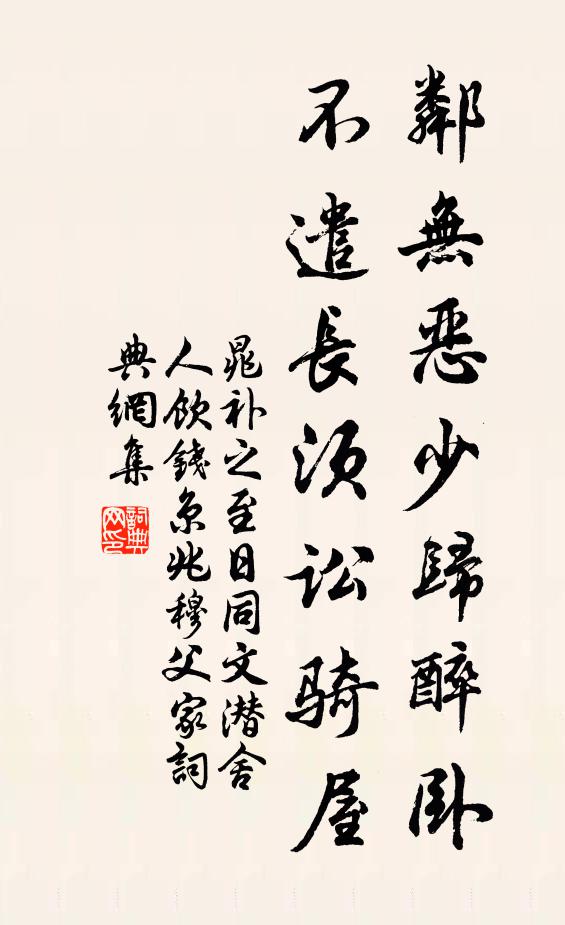 鄰無惡少歸醉卧
不遣長須訟騎屋
晁补之至日同文潜舍
人飲錢京兆穆父家詞
典網集
詞典网印